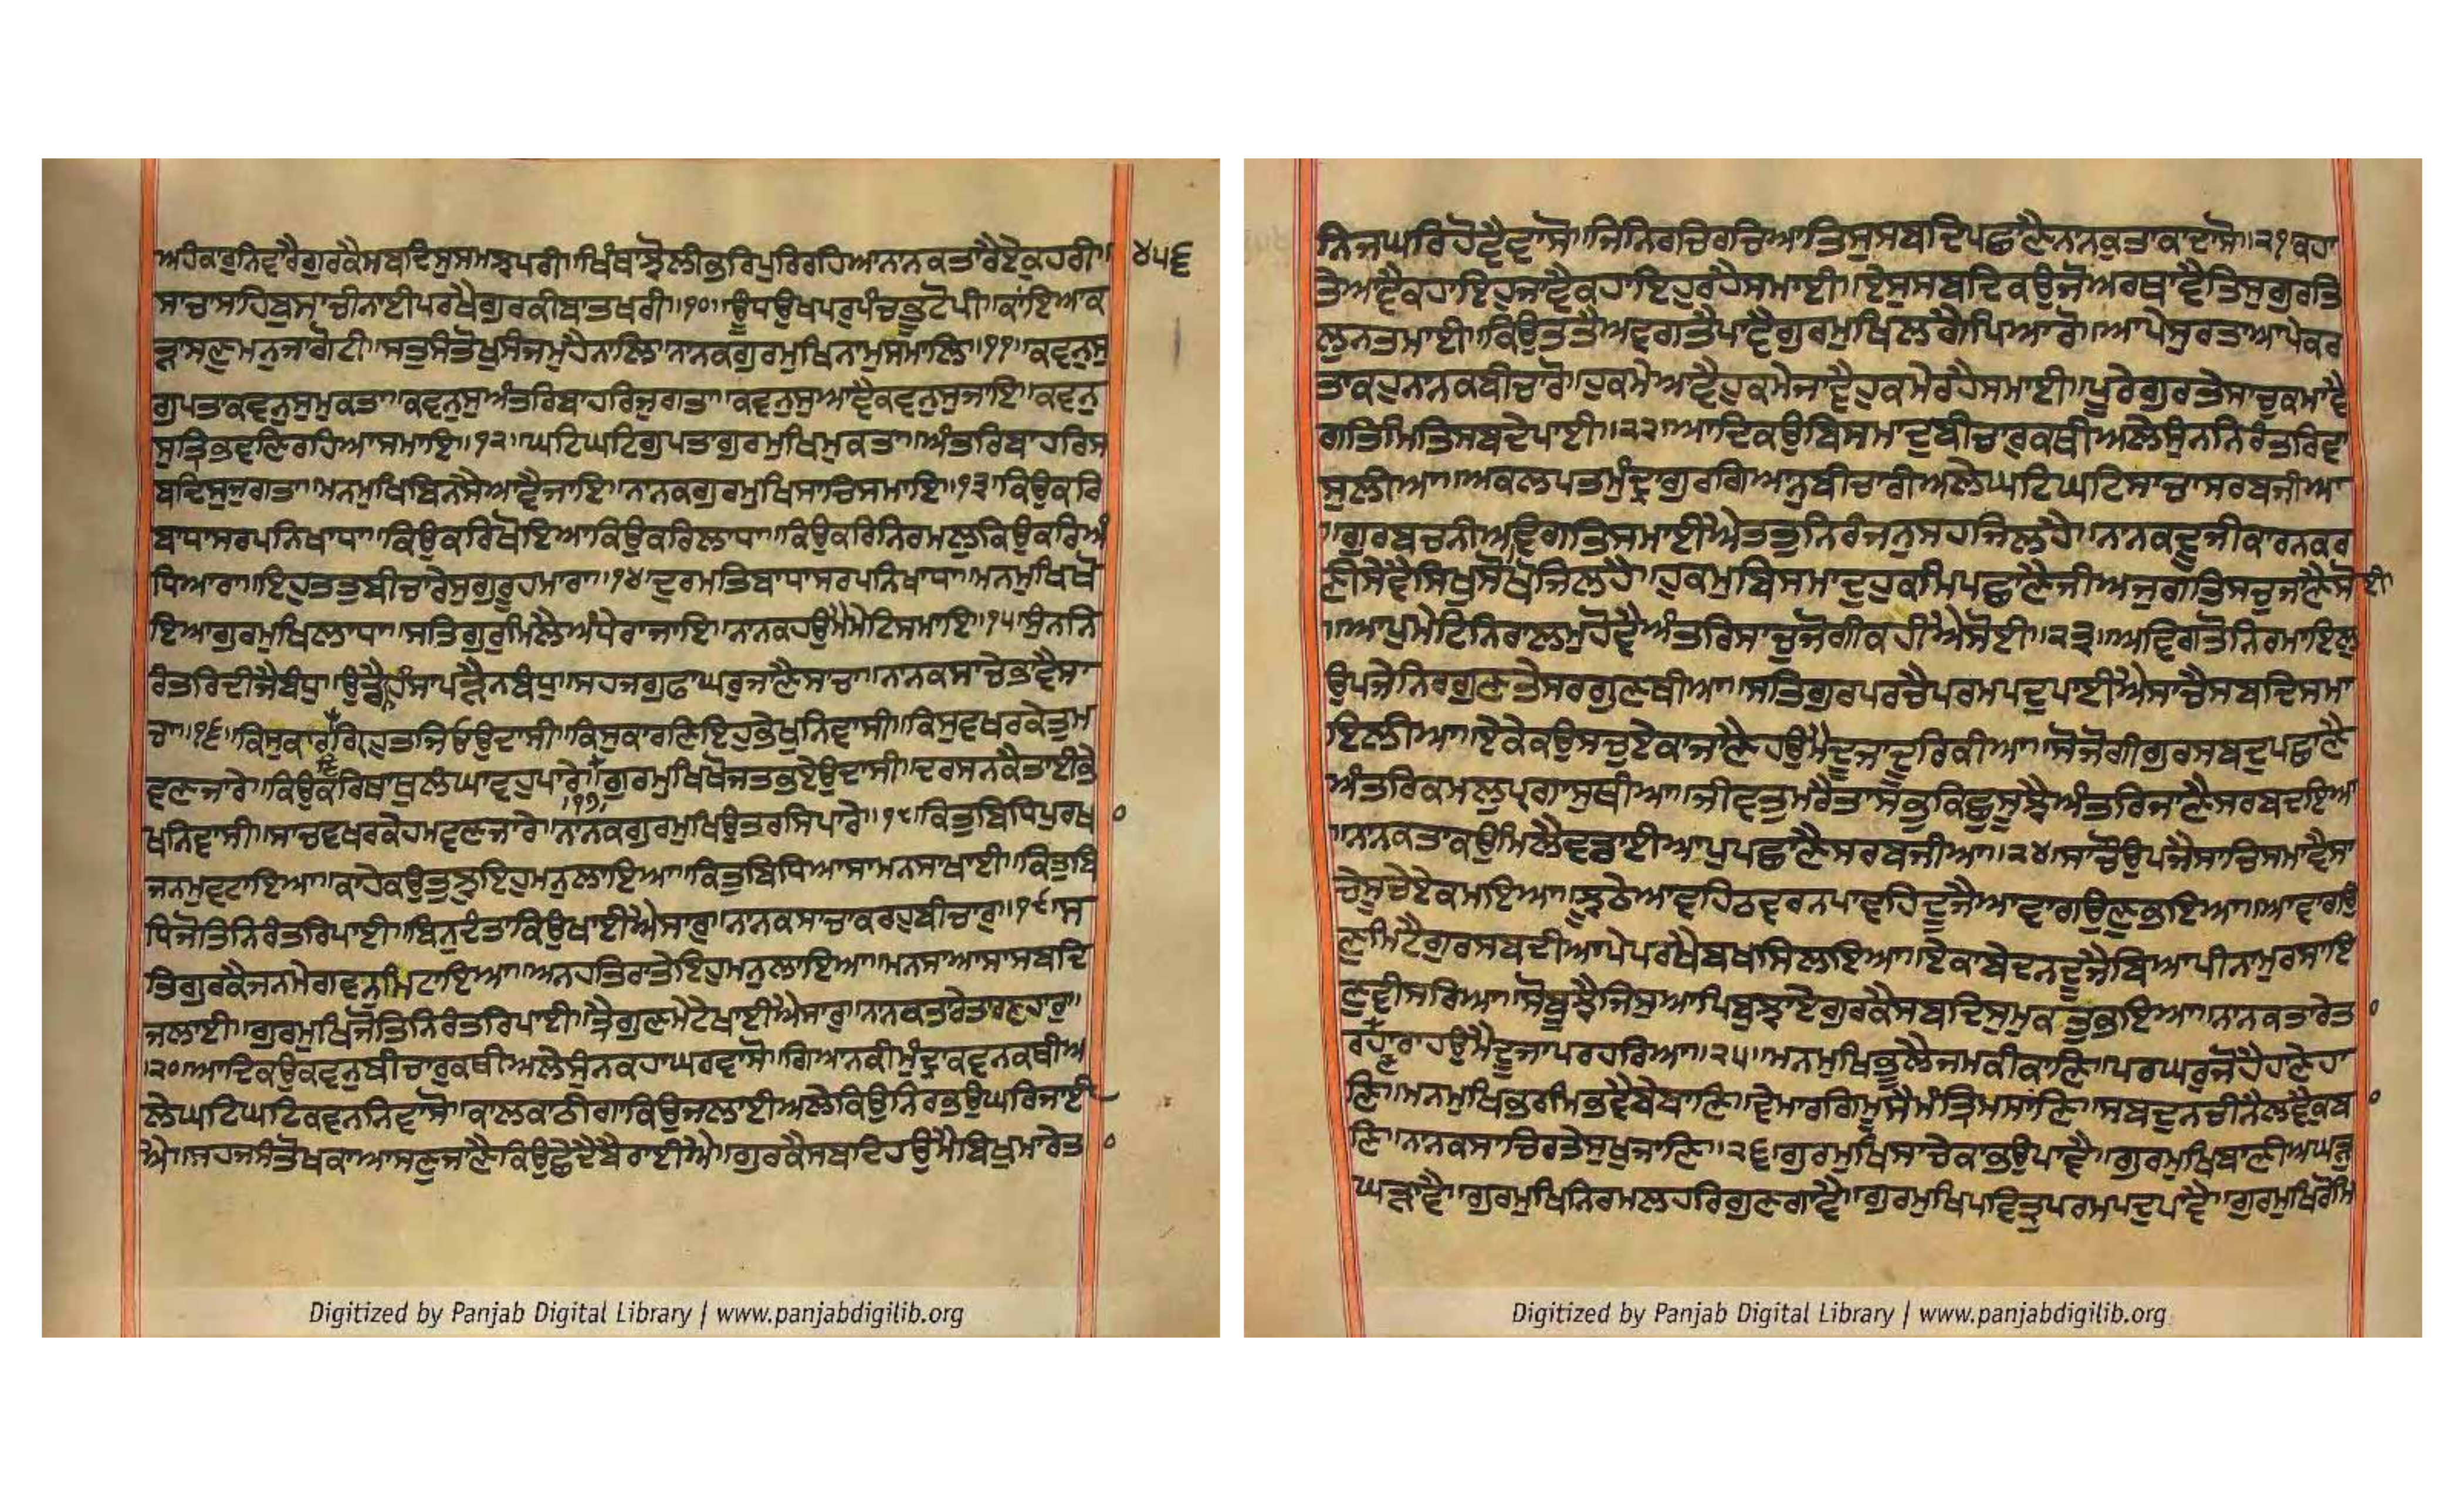 ਅਹੰਕਾਰੁਨਿਵਾਰੈਗੁਰਕੈਸਬਦਿਸੁਸਮਝਪਰੀ॥ਖਿੰਥਾਝੋਲੀਭਰਿਪੁਰਿਰਹਿਆਨਾਨਕਤਾਰੈਏਕੁਹਰੀ॥ ੪੫੬
ਸਾਚਾਸਾਹਿਬੁਸਾਚੀਨਾਈਪਰਖੈਗੁਰਕੀਬਾਤਖਰੀ॥੧੦॥ਊਪਉਖਪਰੁਪੰਚਭੂਟੋਪੀ॥ਕਾਂਇਆਕ
ੜਾਸਣਮਨੁਜਾਗੋਟੀ॥ਸਤੁਸੰਤੋਖੁਸੰਜਮੁਹੈਨਾਲਿ॥ਨਾਨਕਗੁਰਮੁਖਿਨਾਮੁਸਮਾਲਿ॥੧੧॥ਕਵਨੁਸੁ
ਗੁਪਤਾਕਵਨੁਸੁਮੁਕਤਾ॥ਕਵਨੁਸੁਅੰਤਰਿਬਾਹਰਿਜੁਗਤਾ॥ਕਵਨੁਸੁਆਵੈਕਵਨੁਸੁਜਾਇ॥ਕਵਨੁ
ਸੁਤ੍ਰਿਭਵਣਿਰਹਿਆਸਮਾਇ॥੧੨॥ਘਟਿਘਟਿਗੁਪਤਾਗੁਰਮੁਖਿਮੁਕਤਾ॥ਅੰਤਰਿਬਾਹਰਿਸ
ਬਦਿਸੁਜੁਗਤਾ॥ਮਨਮੁਖਿਬਿਨਸੈਆਵੈਜਾਇ॥ਨਾਨਕਗੁਰਮੁਖਿਸਾਚਿਸਮਾਇ॥੧੩॥ਕਿਉਕਰਿ
ਬਾਧਾਸਰਪਨਿਖਾਧਾ॥ਕਿਉਕਰਿਖੋਇਆਕਿਉਕਰਿਲਾਧਾ॥ਕਿਉਕਰਿਨਿਰਮਲੁਕਿਉਕਰਿਅੰ
ਧਿਆਰਾ॥ਇਹੁਤਤੁਬੀਚਾਰੈਸੁਗੁਰੂਹਮਾਰਾ॥੧੪॥ਦੁਰਮਤਿਬਾਧਾਸਰਪਨਿਖਾਧਾ॥ਮਨਮੁਖਿਖੋ
ਇਆਗੁਰਮੁਖਿਲਾਧਾ॥ਸਤਿਗੁਰੁਮਿਲੈਅੰਧੇਰਾਜਾਇ॥ਨਾਨਕਹਉਮੈਮੇਟਿਸਮਾਇ॥੧੫॥ਸੁੰਨਨਿ
ਰੰਤਰਿਦੀਜੈਬੰਧੁ॥ਉਡੈਨਹੰਸਾਪੜੈਨਬੰਧੁ॥ਸਹਜਗੁਫਾਘਰੁਜਾਣੈਸਾਚਾ॥ਨਾਨਕਸਾਚੇਭਾਵੈਸਾ
ਚਾ॥੧੬॥ਕਿਸੁਕਾਰਣਿਗ੍ਰਿਹੁਤਜਿਓਉਦਾਸੀ॥ਕਿਸੁਕਾਰਣਿਇਹੁਭੇਖੁਨਿਵਾਸੀ॥ਕਿਸੁਵਖਰਕੇਤੁਮ
ਵਣਜਾਰੇ॥ਕਿਉਕਰਿਸਾਥੁਲੰਘਾਵਹੁਪਾਰੇ॥੧੭॥ਗੁਰਮੁਖਿਖੋਜਤਭਏਉਦਾਸੀ॥ਦਰਸਨਕੈਤਾਈਭੇ
ਖਨਿਵਾਸੀ॥ਸਾਚਵਖਰਕੇਹਮਵਣਜਾਰੇ॥ਨਾਨਕਗੁਰਮੁਖਿਉਤਰਸਿਪਾਰੇ॥੧੮॥ਕਿਤੁਬਿਧਿਪੁਰਖਾ
ਜਨਮੁਵਟਾਇਆ॥ਕਾਹੇਕਉਤੁਝੁਇਹੁਮਨੁਲਾਇਆ॥ਕਿਤੁਬਿਧਿਆਸਾਮਨਸਾਖਾਈ॥ਕਿਤੁਬਿ
ਧਿਜੋਤਿਨਿਰੰਤਰਿਪਾਈ॥ਬਿਨੁਦੰਤਾਕਿਉਖਾਈਐਸਾਰੁ॥ਨਾਨਕਸਾਚਾਕਰਹੁਬੀਚਾਰੁ॥੧੯॥ਸ
ਤਿਗੁਰਕੈਜਨਮੇਗਵਨੁਮਿਟਾਇਆ॥ਅਨਹਤਿਰਾਤੇਇਹੁਮਨੁਲਾਇਆ॥ਮਨਸਾਆਸਾਸਬਦਿ
ਜਲਾਈ॥ਗੁਰਮੁਖਿਜੋਤਿਨਿਰੰਤਰਿਪਾਈ॥ਤ੍ਰੈਗੁਣਮੇਟੇਖਾਈਐਸਾਰੁ॥ਨਾਨਕਤਾਰੇਤਾਰਣਹਾਰੁ॥
॥੨੦॥ਆਦਿਕਉਕਵਨੁਬੀਚਾਰੁਕਥੀਅਲੇਸੁੰਨਕਹਾਘਰਵਾਸੋ॥ਗਿਆਨਕੀਮੁੰਦ੍ਰਾਕਵਨਕਥੀਅ
ਲੇਘਟਿਘਟਿਕਵਨਨਿਵਾਸੋ॥ਕਾਲਕਾਠੀਗਾਕਿਉਜਲਾਈਅਲੇਕਿਉਨਿਰਭਉਘਰਿਜਾਈ
ਐ॥ਸਹਜਸੰਤੋਖਕਾਆਸਣੁਜਾਣੈਕਿਉਛੇਦੈਬੈਰਾਈਐ॥ਗੁਰਕੈਸਬਦਿਹਉਮੈਬਿਖੁਮਾਰੇਤ
ਨਿਜਘਰਿਹੋਵੈਵਾਸੋ॥ਜਿਨਿਰਚਿਰਚਿਆਤਿਸੁਸਬਦਿਪਛਾਣੈਨਾਨਕੁਤਾਕਾਦਾਸੋ॥੨੧॥ਕਹਾ
ਤੇਆਵੈਕਹਾਇਹੁਜਾਵੈਕਹਾਇਹੁਰਹੈਸਮਾਈ॥ਏਸੁਸਬਦਿਕਉਜੋਅਰਥਾਵੈਤਿਸੁਗੁਰਤਿ
ਲੁਨਤਮਾਈ॥ਕਿਉਤਤੈਅਵਗਤੈਪਾਵੈਗੁਰਮੁਖਿਲਗੈਪਿਆਰੋ॥ਆਪੇਸੁਰਤਾਆਪੇਕਰ
ਤਾਕਹੁਨਾਨਕਬੀਚਾਰੋ॥ਹੁਕਮੇਆਵੈਹੁਕਮੇਜਾਵੈਹੁਕਮੇਰਹੈਸਮਾਈ॥ਪੂਰੇਗੁਰਤੇਸਾਚੁਕਮਾਵੈ
ਗਤਿਮਿਤਿਸਬਦੇਪਾਈ॥੨੨॥ਆਦਿਕਉਬਿਸਮਾਦੁਬੀਚਾਰੁਕਥੀਅਲੇਸੁੰਨਨਿਰੰਤਰਿਵਾ
ਸੁਲੀਆ॥ਅਕਲਪਤਮੁੰਦ੍ਰਾਗੁਰਗਿਆਨੁਬੀਚਾਰੀਅਲੇਘਟਿਘਟਿਸਾਚਾਸਰਬਜੀਆ
॥ਗੁਰਬਚਨੀਅਵਿਗਤਿਸਮਾਈਐਤਤੁਨਿਰੰਜਨੁਸਹਜਿਲਹੈ॥ਨਾਨਕਦੂਜੀਕਾਰਨਕਰ
ਣੀਸੇਵੈਸਿਖੁਸੋਖੋਜਿਲਹੈ॥ਹੁਕਮੁਬਿਸਮਾਦੁਹੁਕਮਿਪਛਾਣੈਜੀਅਜੁਗਤਿਸਚੁਜਾਣੈਸੋਈ
॥ਆਪੁਮੇਟਿਨਿਰਾਲਮੁਹੋਵੈਅੰਤਰਿਸਾਚੁਜੋਗੀਕਹੀਐਸੋਈ॥੨੩॥ਅਵਿਗਤੋਨਿਰਮਾਇਲੁ
ਉਪਜੇਨਿਰਗੁਣਤੇਸਰਗੁਣਥੀਆ॥ਸਤਿਗੁਰਪਰਚੈਪਰਮਪਦੁਪਾਈਐਸਾਚੈਸਬਦਿਸਮਾ
ਇਲੀਆ॥ਏਕੇਕਉਸਚੁਏਕਾਜਾਣੈਹਉਮੈਦੂਜਾਦੂਰਿਕੀਆ॥ਸੋਜੋਗੀਗੁਰਸਬਦੁਪਛਾਣੈ
ਅੰਤਰਿਕਮਲੁਪ੍ਰਗਾਸੁਥੀਆ॥ਜੀਵਤੁਮਰੈਤਾਸਭੁਕਿਛੁਸੂਝੈਅੰਤਰਿਜਾਣੈਸਰਬਦਇਆ
॥ਨਾਨਕਤਾਕਉਮਿਲੈਵਡਾਈਆਪੁਪਛਾਣੈਸਰਬਜੀਆ॥੨੪॥ਸਾਚੌਉਪਜੈਸਾਚਿਸਮਾਵੈਸਾ
ਚੇਸੂਚੇਏਕਮਇਆ॥ਝੂਠੇਆਵਹਿਠਵਰਨਪਾਵਹਿਦੂਜੈਆਵਾਗਉਣੁਭਇਆ॥ਆਵਾਗਉ
ਣੁਮਿਟੈਗੁਰਸਬਦੀਆਪੇਪਰਖੈਬਖਸਿਲਇਆ॥ਏਕਾਬੇਦਨਦੂਜੈਬਿਆਪੀਨਾਮੁਰਸਾਇ
ਣੁਵੀਸਰਿਆ॥ਸੋਬੂਝੈਜਿਸੁਆਪਿਬੁਝਾਏਗੁਰਕੈਸਬਦਿਸੁਮੁਕਤੁਭਇਆ॥ਨਾਨਕਤਾਰੇਤਾ
ਰਣਹਾਰਾਹਉਮੈਦੂਜਾਪਰਹਰਿਆ॥੨੫॥ਮਨਮੁਖਿਭੂਲੈਜਮਕੀਕਾਣਿ॥ਪਰਘਰੁਜੋਹੈਹਾਣੇਹਾ
ਣਿ॥ਮਨਮੁਖਿਭਰਮਿਭਵੈਬੇਬਾਣਿ॥ਵੇਮਾਰਗਿਮੂਸੈਮੰਤ੍ਰਿਮਸਾਣਿ॥ਸਬਦੁਨਚੀਨੈਲਵੈਕੁਬਾ
ਣਿ॥ਨਾਨਕਸਾਚਿਰਤੇਸੁਖੁਜਾਣਿ॥੨੬॥ਗੁਰਮੁਖਿਸਾਚੇਕਾਭਉਪਾਵੈ॥ਗੁਰਮੁਖਿਬਾਣੀਅਘੜੁ
ਘੜਾਵੈ॥ਗੁਰਮੁਖਿਨਿਰਮਲਹਰਿਗੁਣਗਾਵੈ॥ਗੁਰਮੁਖਿਪਵਿਤ੍ਰੁਪਰਮਪਦੁਪਾਵੈ॥ਗੁਰਮੁਖਿਰੋਮਿ
Digitized by Panjab Digital Library | www.panjabdigilib.org
Digitized by Panjab Digital Library | www.panjabdigilib.org